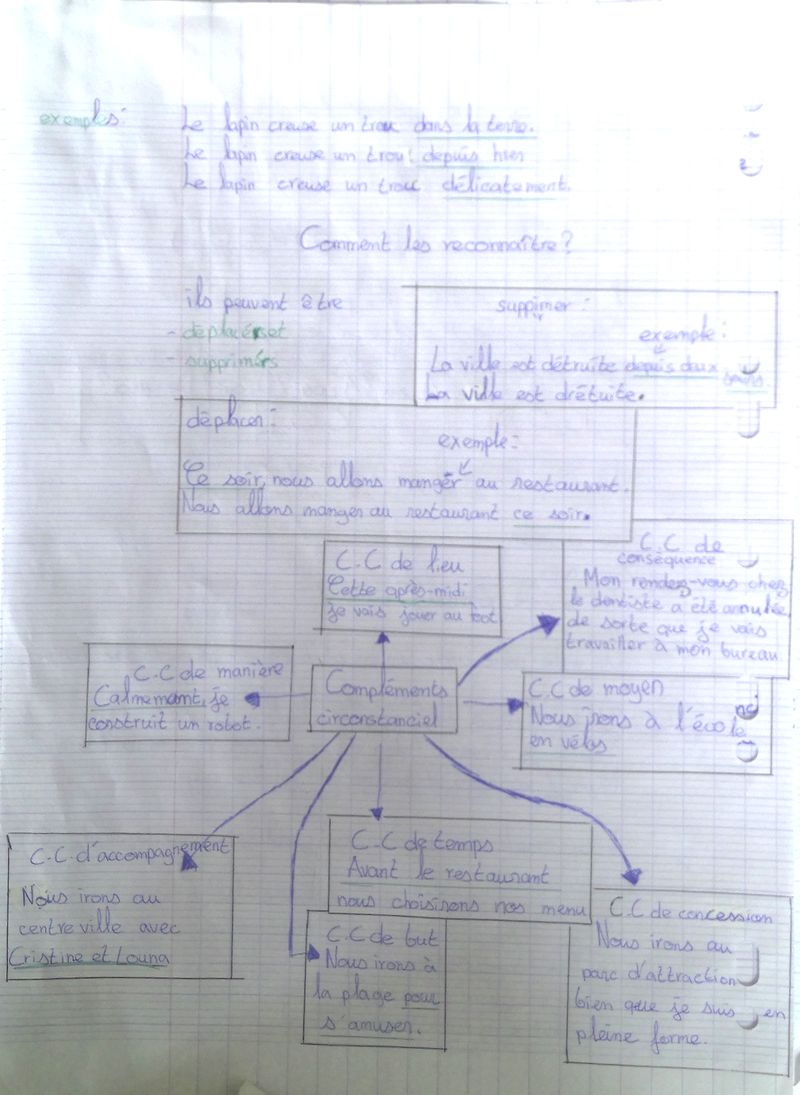 exemples:
Le lapin creuse un trou dans la terre.
Le lapin creuse un trou depuis hier
Le lapin creuse un trou délicatement.
Comment les reconnaître?
ils peuvent être
- déplacés et
- supprimés
suppimer :
exemple :
La ville est détruite depuis deux
La ville est drétuite.
déplacer :
exemple :
Ce soir, nous allons manger au restaurant.
Nous allons manger au restaurant ce soir.
C.C de lieu
Cette après-midi
je vais jouer au foot
C.C de
conséquence
Mon rendez-vous chez
le dentiste a été annulée,
de sorte que je vais
travailler à mon bureau
C.C de manière
Calmemant, je
construit un robot.
Compléments
circonstanciel
C.C de moyen
Nous irons à l'école
en vélos
C.C. d'accompagnement
Nous irons au
centre ville avec
Cristine et Louna
C.C de temps
Avant le restaurant
nous choisirons nos menu
C.C de but
Nous irons à
la plage pour
s'amuser.
C.C de concession
Nous irons au
parc d'attraction
bien que je suis en
pleine forme.